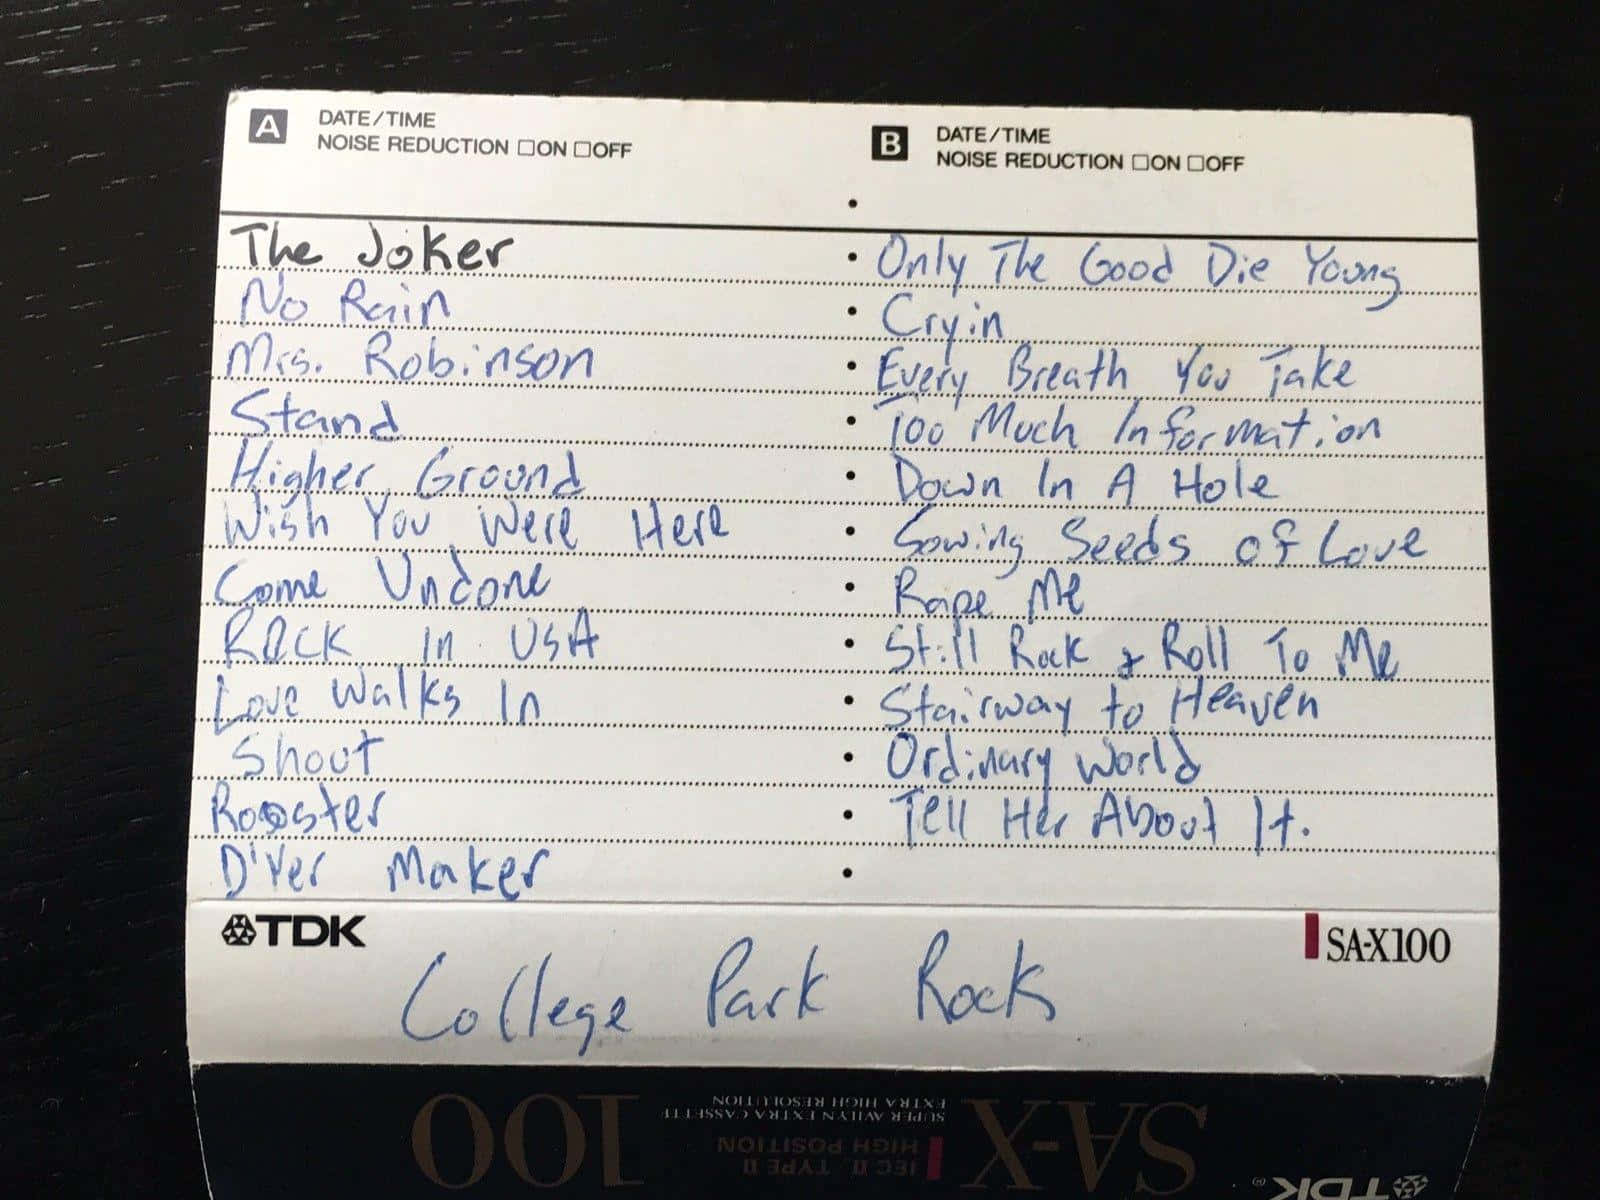 A DATE/TIME
NOISE REDUCTION □ON □OFF
The Joker
No Rain
Mrs. Robinson
Stand
Higher Ground
Wish You Were Here
Come Undone
ROCK In USA
Love Walks In
Shout
Rooster
D'Yer Maker
B DATE/TIME
NOISE REDUCTION □ON □OFF
Only The Good Die Young
Cryin
Every Breath You Take
Too Much Information
Down In A Hole
Sowing Seeds of Love
Rape Me
Still Rock & Roll To Me
Stairway to Heaven
Ordinary World
Tell Her About It.
TDK
SA-X100
College Park Rock
TDK
SA-X 100
IEC II TYPE II
HIGH POSITION
SUPER AVILYN EXTRA CASSETTE
EXTRA HIGH RESOLUTION